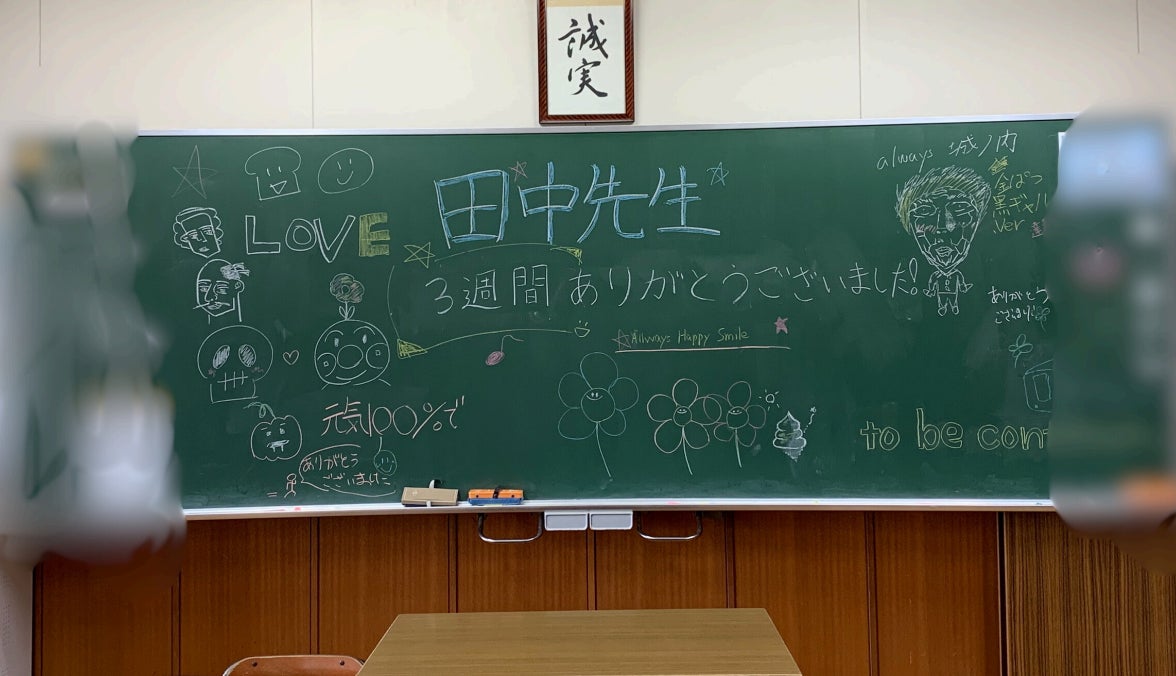 誠実
LOVE
田中先生
3週間ありがとうございました!
Allways Happy Smile
always 城ノ内
金ぱつ
黒ギャル
ver
ありがとう
元気100%で
ありがとう
ございました
to be con